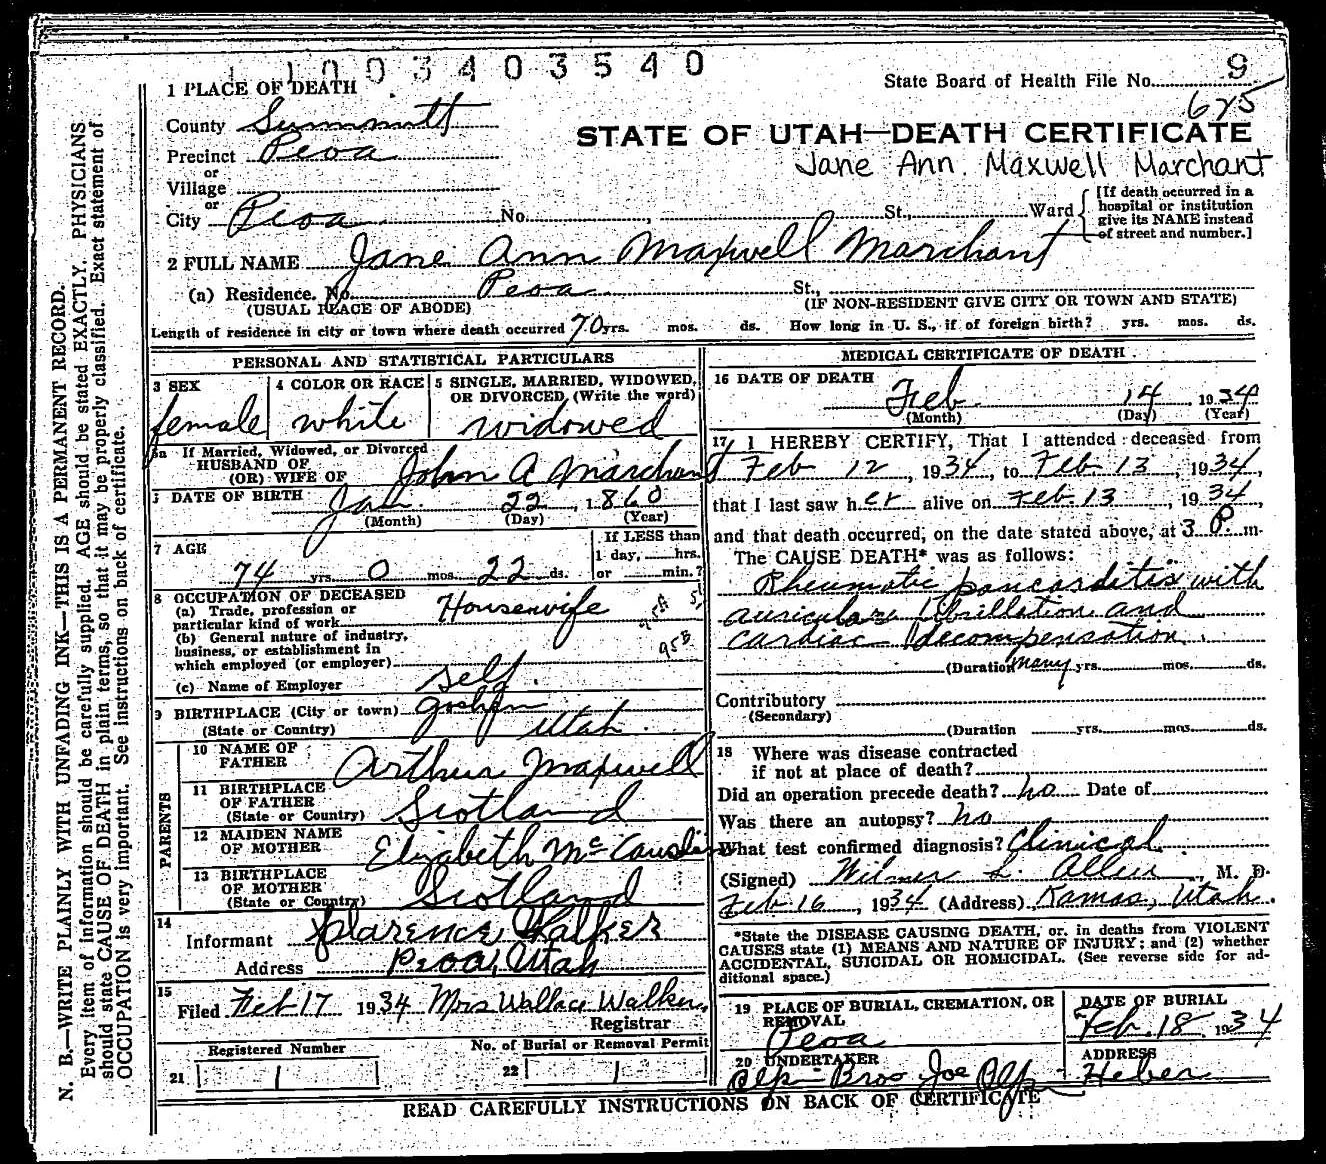 1 1003403540
State Board of Health File No. 9
625
1 PLACE OF DEATH
County Summitt
STATE OF UTAH—DEATH CERTIFICATE
Precinct Peoa
or
Jane Ann Maxwell Marchant
Village
or
City Peoa No. , St., Ward
[If death occurred in a
hospital or institution
give its NAME instead
of street and number.]
2 FULL NAME Jane Ann Maxwell Marchant
(a) Residence. No. Peoa St.,
(USUAL PLACE OF ABODE) (IF NON-RESIDENT GIVE CITY OR TOWN AND STATE)
Length of residence in city or town where death occurred 70 yrs. mos. ds. How long in U. S., if of foreign birth? yrs. mos. ds.
PERSONAL AND STATISTICAL PARTICULARS
3 SEX
female
4 COLOR OR RACE
white
5 SINGLE, MARRIED, WIDOWED,
OR DIVORCED, (Write the word)
widowed
5a If Married, Widowed, or Divorced
HUSBAND OF
(OR) WIFE OF John A Marchant
DATE OF BIRTH Jan. 22, 1860
(Month) (Day) (Year)
7 AGE
74 yrs. 0 mos. 22 ds.
If LESS than
1 day, hrs.
or min.?
8 OCCUPATION OF DECEASED
(a) Trade, profession or
particular kind of work Housewife
(b) General nature of industry,
business, or establishment in
which employed (or employer)
95B
(c) Name of Employer self.
9 BIRTHPLACE (City or town) Goshen
(State or Country) Utah
PARENTS
10 NAME OF
FATHER Arthur Maxwell
11 BIRTHPLACE
OF FATHER
(State or Country) Scotland
12 MAIDEN NAME
OF MOTHER Elizabeth McCauslin
13 BIRTHPLACE
OF MOTHER
(State or Country) Scotland
14
Informant Clarence Walker
Address Peoa, Utah
15
Filed Feb 17 1934 Mrs Wallace Walker,
Registrar
Registered Number
21 1
No. of Burial or Removal Permit
22 1
MEDICAL CERTIFICATE OF DEATH
16 DATE OF DEATH
Feb 14, 1934
(Month) (Day) (Year)
17 I HEREBY CERTIFY, That I attended deceased from
Feb 12, 1934, to Feb 13, 1934,
that I last saw her alive on Feb. 13, 1934,
and that death occurred, on the date stated above, at 3 P. m.
The CAUSE DEATH* was as follows:
Rheumatic pancarditis with
auricular fibrillation and
cardiac decompensation.
(Duration many yrs. mos. ds.
Contributory
(Secondary)
(Duration yrs. mos. ds.
18 Where was disease contracted
if not at place of death?
Did an operation precede death? no Date of
Was there an autopsy? no
What test confirmed diagnosis? Clinical.
(Signed) Wilmer L. Allen, M. D.
Feb 16, 1934 (Address) Kamas, Utah.
*State the DISEASE CAUSING DEATH, or, in deaths from VIOLENT
CAUSES state (1) MEANS AND NATURE OF INJURY; and (2) whether
ACCIDENTAL, SUICIDAL OR HOMICIDAL. (See reverse side for ad-
ditional space.)
19 PLACE OF BURIAL, CREMATION, OR
REMOVAL
Peoa
DATE OF BURIAL
Feb. 18 1934
20 UNDERTAKER
Olp Bros Joe Olp
ADDRESS
Heber
READ CAREFULLY INSTRUCTIONS ON BACK OF CERTIFICATE
N. B.—WRITE PLAINLY WITH UNFADING INK—THIS IS A PERMANENT RECORD.
Every item of information should be carefully supplied. AGE should be stated EXACTLY. PHYSICIANS
should state CAUSE OF DEATH in plain terms, so that it may be properly classified. Exact statement of
OCCUPATION is very important. See instructions on back of certificate.